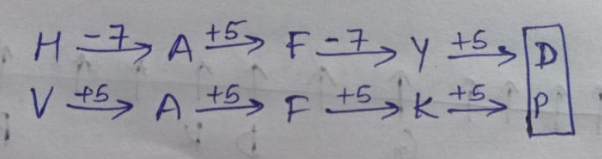 H -7→ A +5→ F -7→ Y +5→ D
V +5→ A +5→ F +5→ K +5→ P